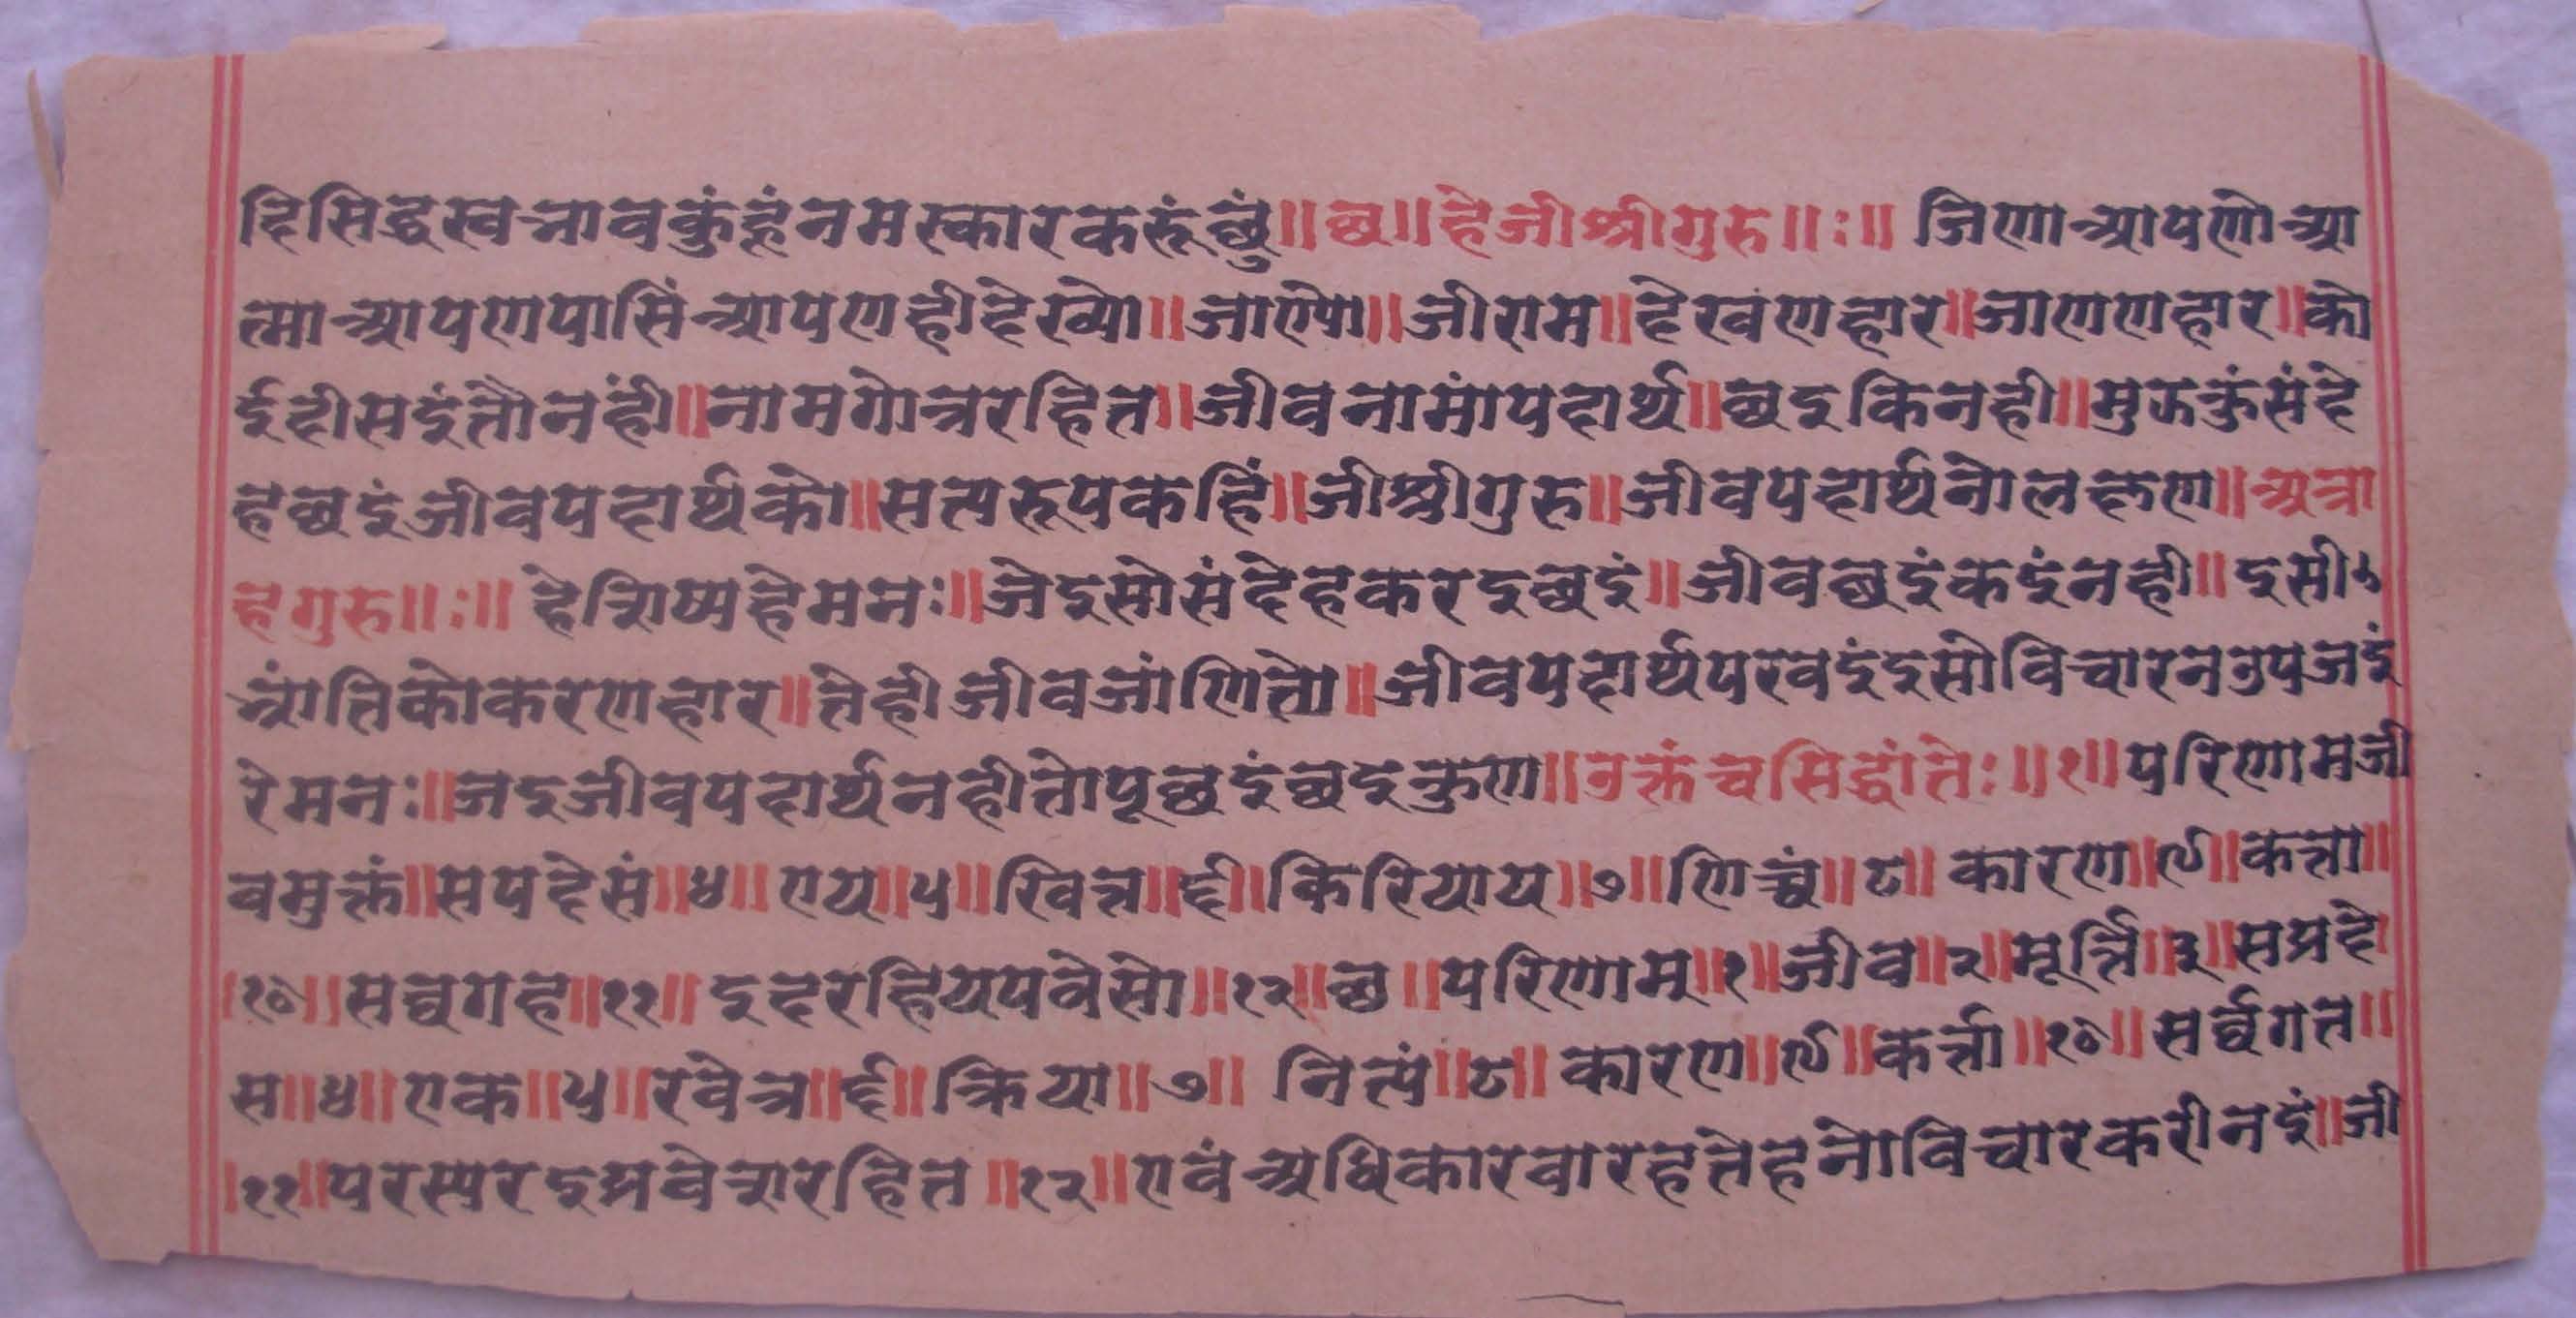 दिसिद्धस्वनावकुंहूंनमस्कारकरूंछुं॥छ॥हेजीश्रीगुरु॥ः॥ जिणाआपणोआ
त्माआपणपासिंआपणहीदेख्यो॥जाण्यो॥जीराम॥देखंणहार॥जाणणहार॥को
ईदीसइंतौनंही॥नामगोत्ररहित॥जीवनामांपदार्थ॥छइकिनही॥मुऊकुंसंदे
हछइंजीवपदार्थको॥सत्यरूपकहिं॥जीश्रीगुरु॥जीवपदार्थनोलक्षण॥अत्रा
हगुरु॥ः॥ हेशिष्यहेमनः॥जेइसोसंदेहकरइछइं॥जीवछइंकइंनही॥इसी
त्रांतिकोकरणहार॥तेहीजीवजांणितो॥जीवपदार्थपरवइंइसोविचारनउपजइं
रेमनः॥जइजीवपदार्थनहीतोपूछइंछइकुण॥उक्तंचसिद्धांतेः॥१॥परिणामजी
वमुक्तं॥सपदेसं॥४॥एय॥५॥खित्त॥६॥किरियाय॥७॥णिच्चं॥८॥कारण॥९॥कत्ता॥
१०॥सव्वगह॥११॥ इदरहियपवेसो॥१२॥छ॥परिणाम्॥१॥जीव॥२॥मूर्त्ति॥३॥सप्रदे
स॥४॥एक॥५॥खेत्र॥६॥क्रिया॥७॥ नित्यं॥८॥ कारण॥९॥कर्त्ता॥१०॥ सर्व्वगत॥
११॥परस्परइप्रवेशरहित॥१२॥एवंअधिकारवारहतेहनोविचारकरीनइं॥जी